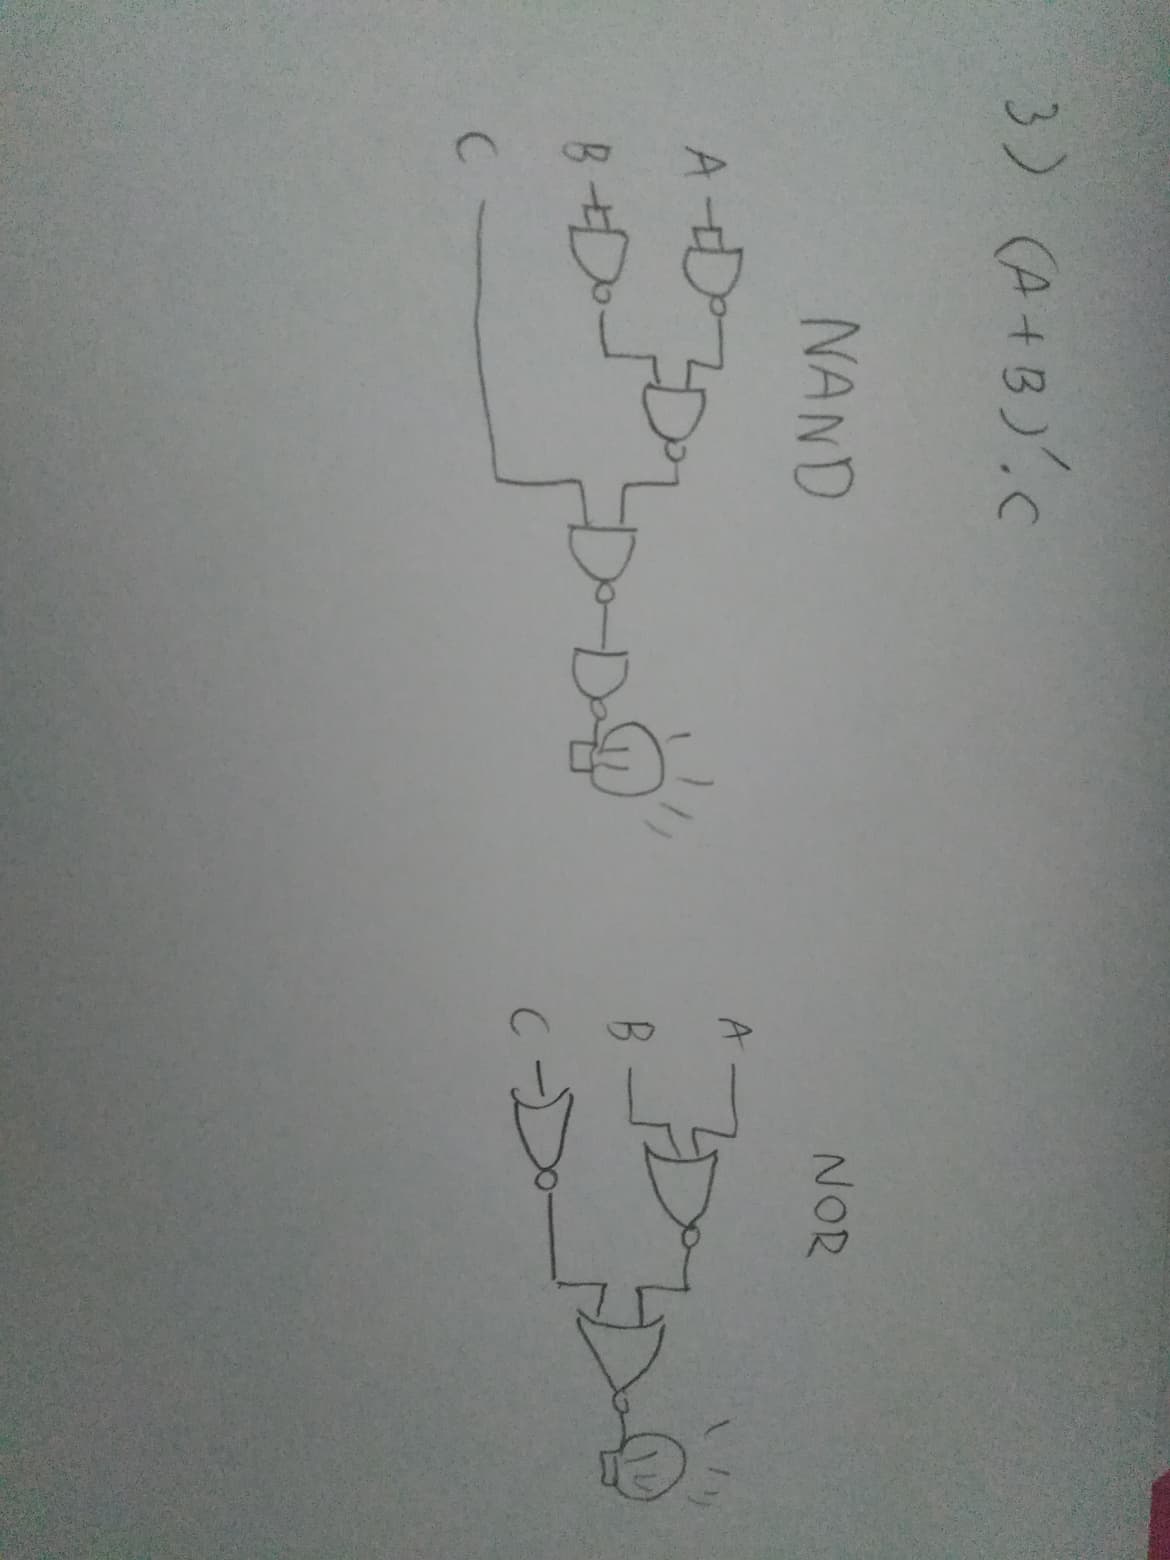 3) (A+B)'.C
NAND
A
B
C
NOR
A
B
C